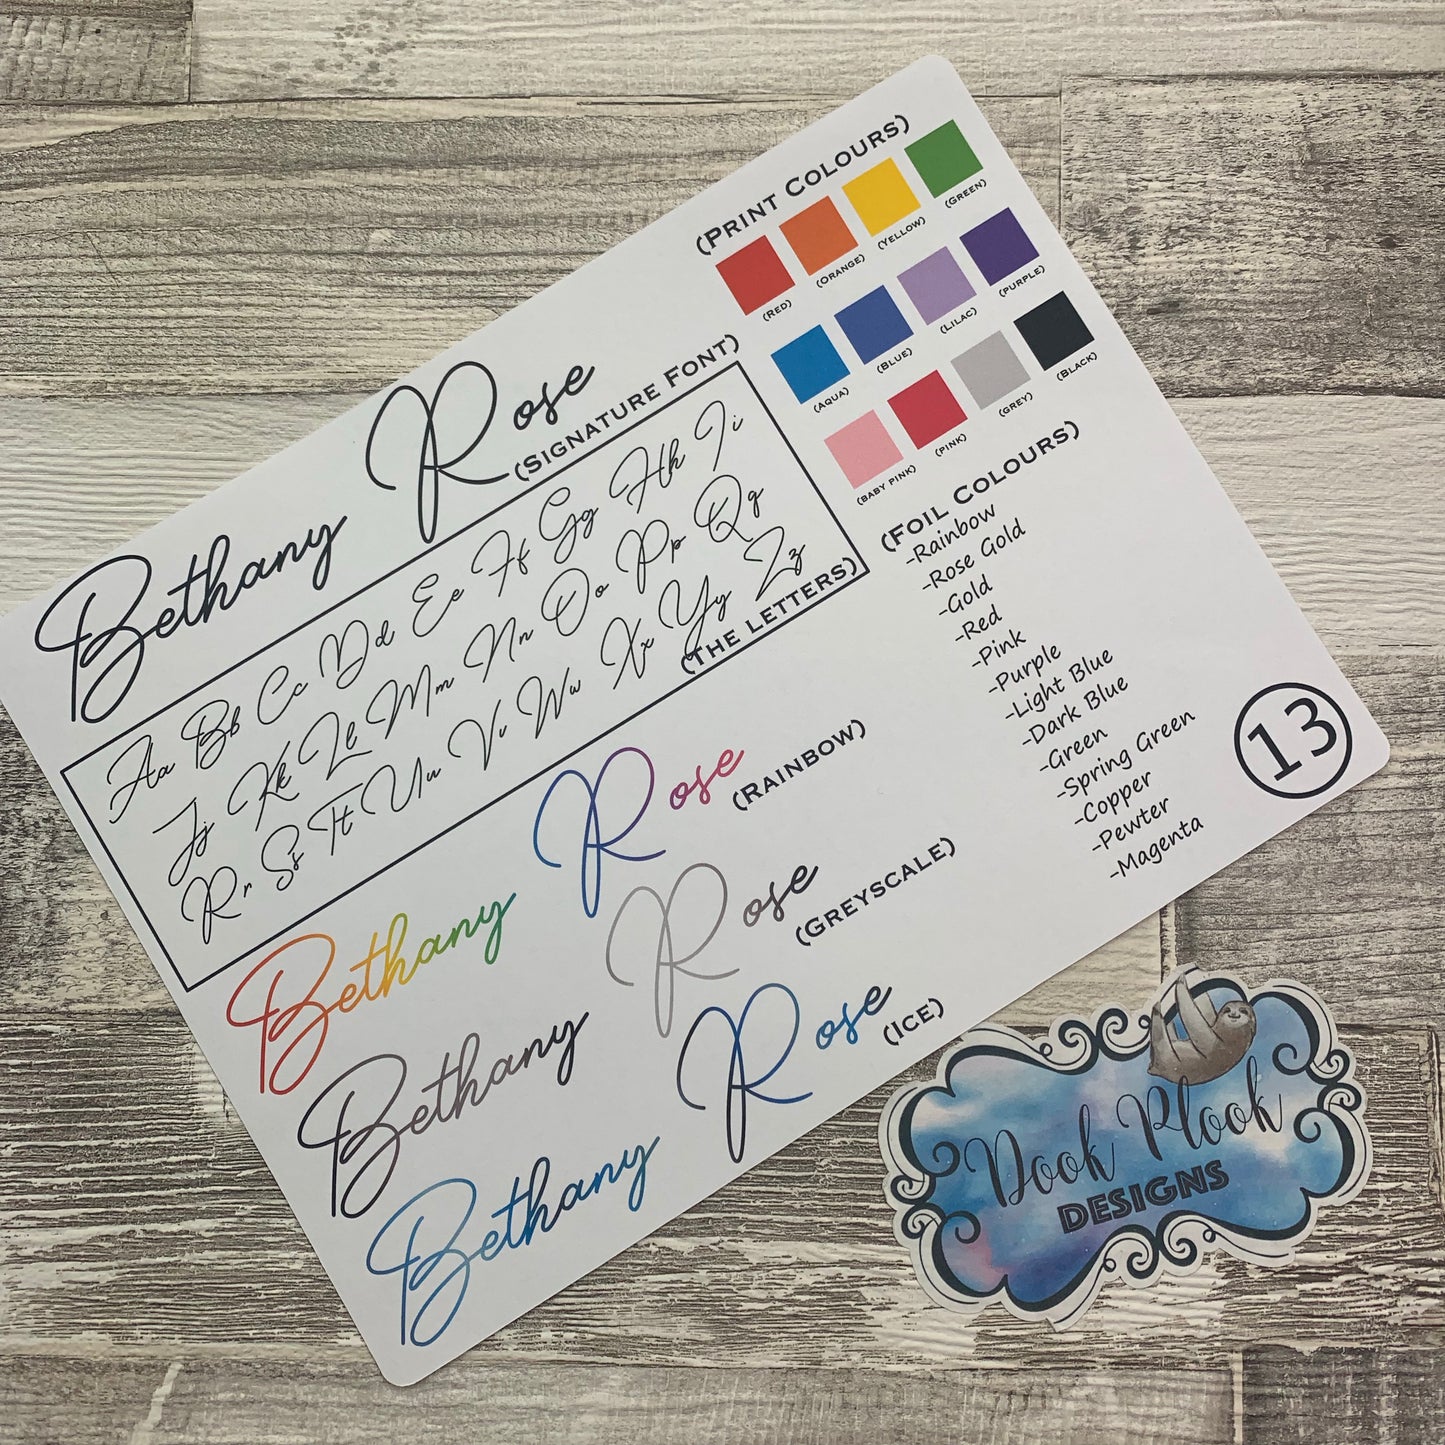 Bethany Rose
(Signature Font)
Aa Bb Cc Dd Ee Ff Gg Hh Ii
Jj Kk Ll Mm Nn Oo Pp Qq
Rr Ss Tt Uu Vv Ww Xx Yy Zz
(The Letters)
Bethany Rose
(Rainbow)
Bethany Rose
(Greyscale)
Bethany Rose
(Ice)
(Print Colours)
(Red) (Orange) (Yellow) (Green)
(Aqua) (Blue) (Lilac) (Purple)
(Baby Pink) (Pink) (Grey) (Black)
(Foil Colours)
-Rainbow
-Rose Gold
-Gold
-Red
-Pink
-Purple
-Light Blue
-Dark Blue
-Green
-Spring Green
-Copper
-Pewter
-Magenta
13
Dook Plook
DESIGNS